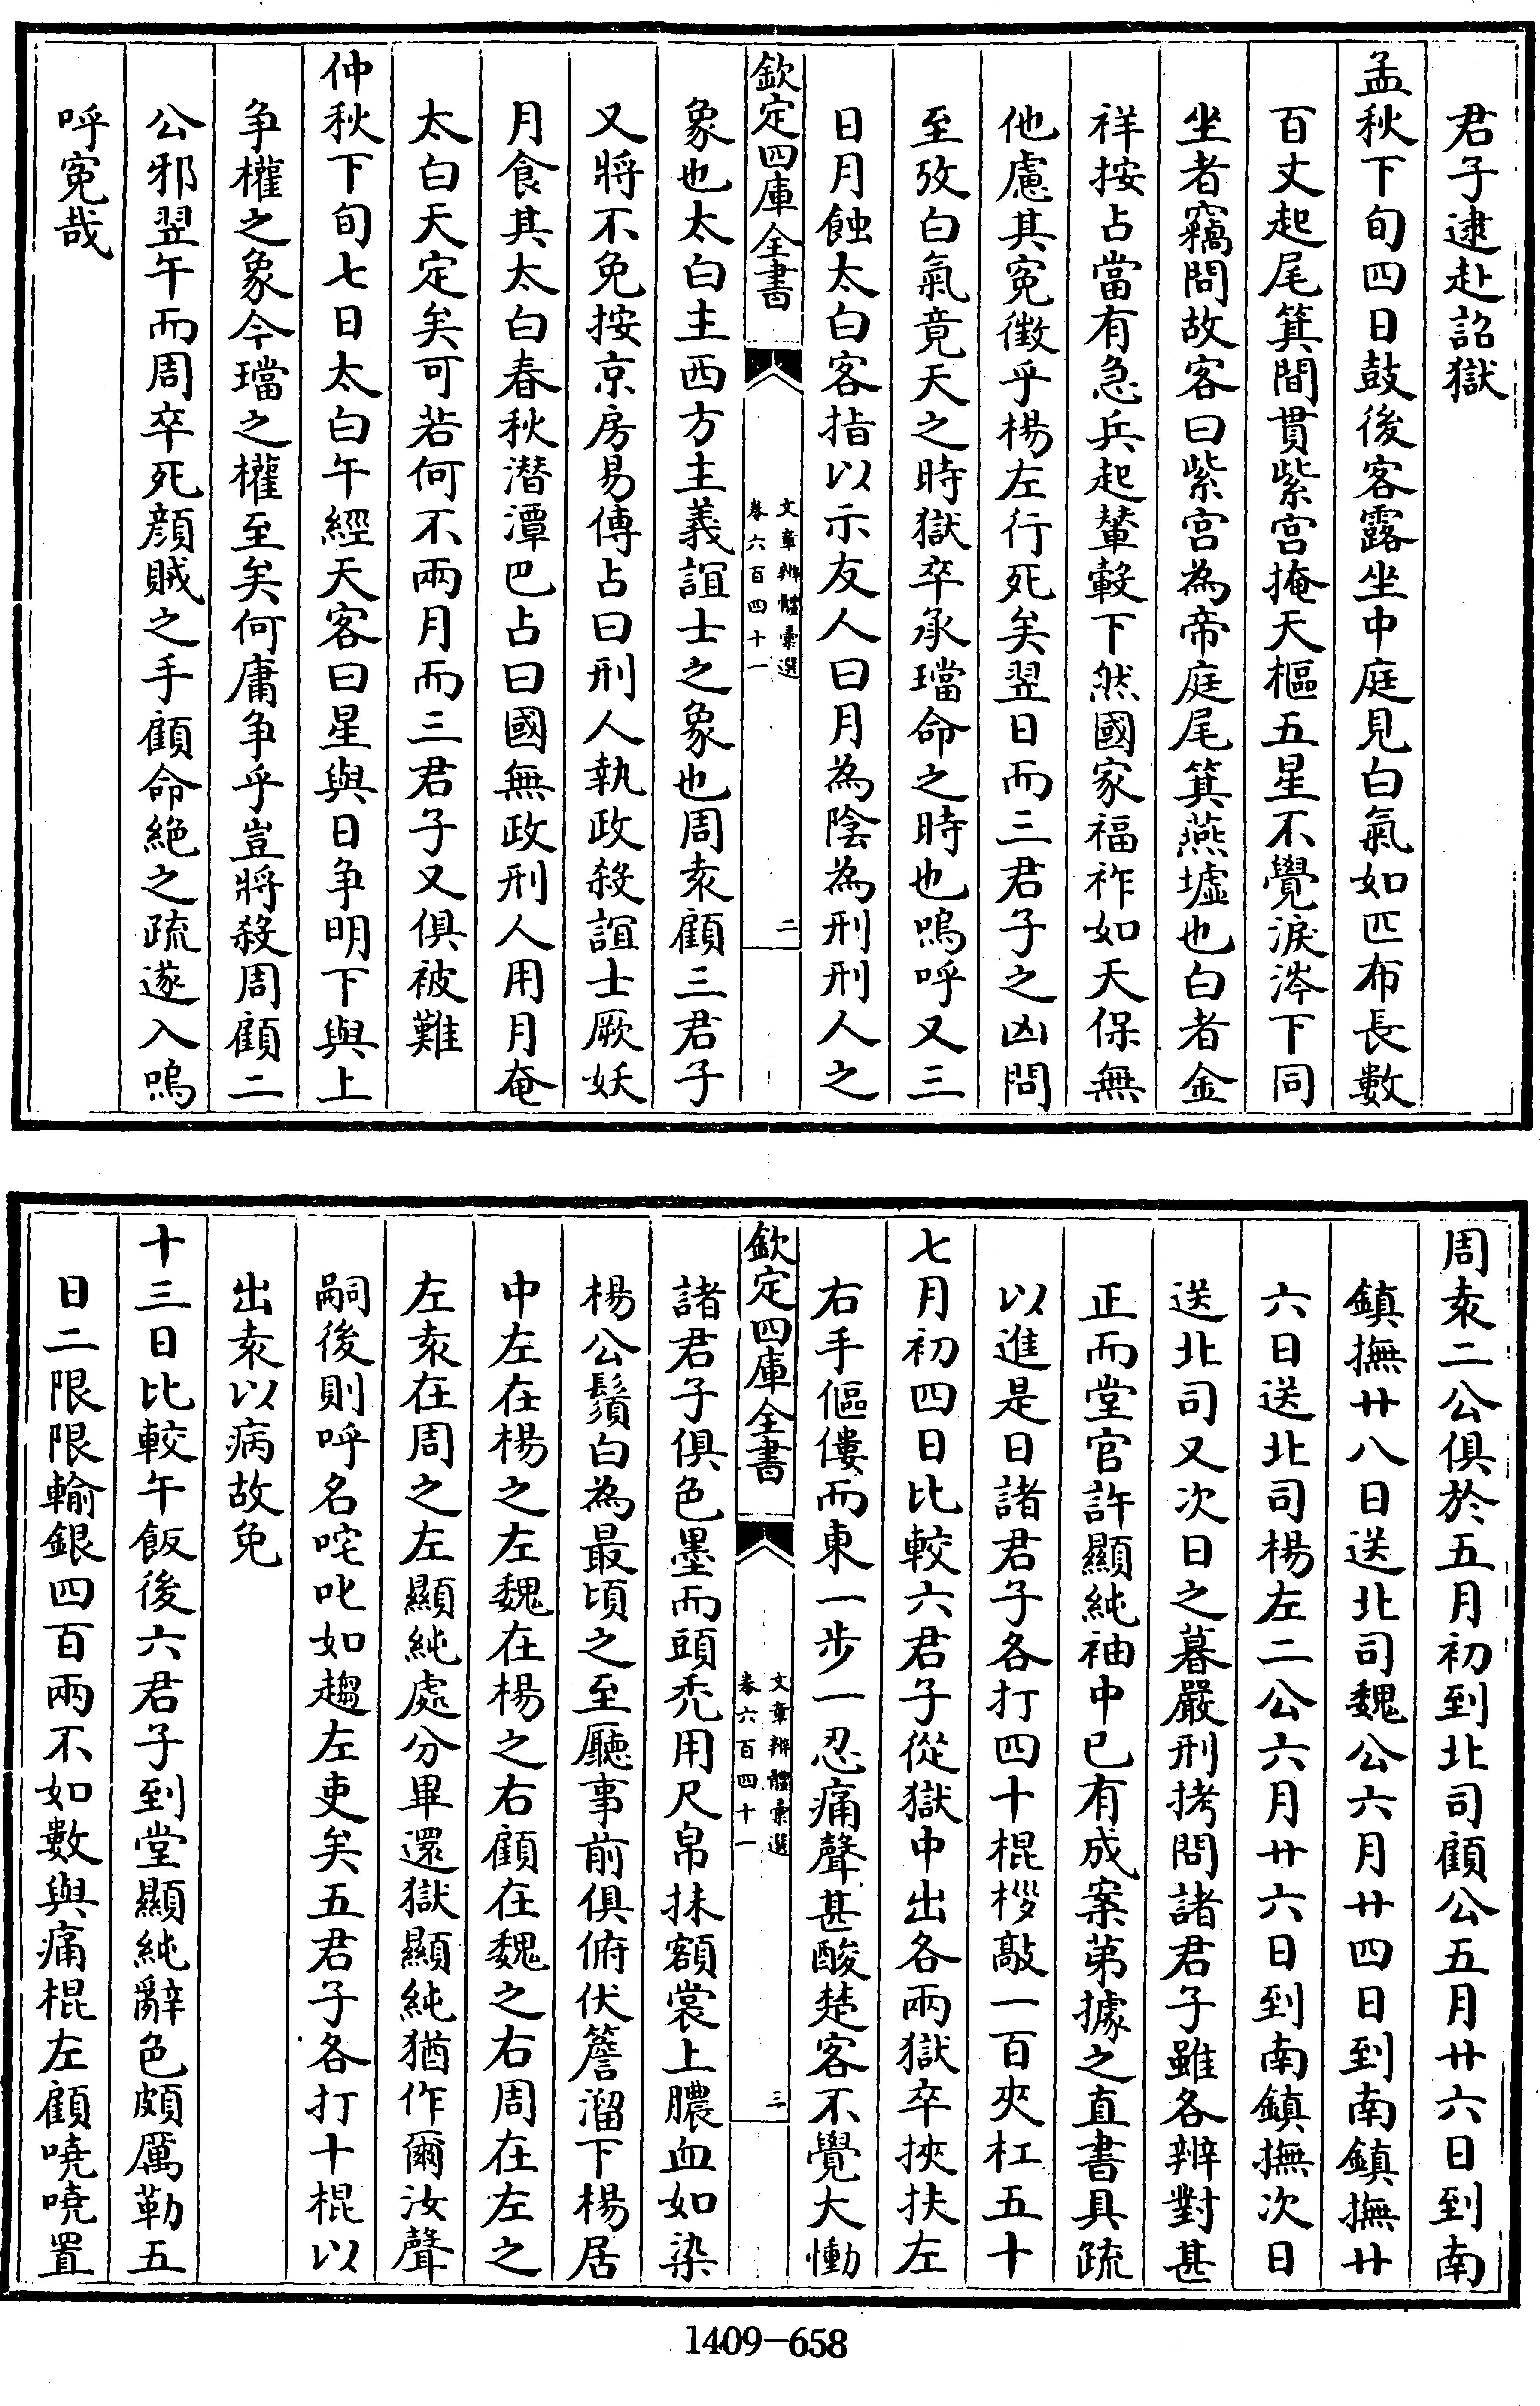 君子逮赴詔獄
孟秋下旬四日鼓後客露坐中庭見白氣如匹布長數
百丈起尾箕間貫紫宫掩天樞五星不覺淚涔下同
坐者竊問故客曰紫宫為帝庭尾箕燕墟也白者金
祥按占當有急兵起輦轂下然國家福祚如天保無
他慮其寃徴乎楊左行死矣翌日而三君子之凶問
至攷白氣竟天之時獄卒承璫命之時也嗚呼又三
日月蝕太白客指以示友人曰月為陰為刑刑人之
欽定四庫全書
文章辨體彚選
卷六百四十一
二
象也太白主西方主義誼士之象也周袁顧三君子
又將不免按京房易傳占曰刑人執政殺誼士厥妖
月食其太白春秋潛潭巴占曰國無政刑人用月奄
太白天定矣可若何不兩月而三君子又俱被難
仲秋下旬七日太白午經天客曰星與日争明下與上
争權之象今璫之權至矣何庸争乎豈將殺周顧二
公邪翌午而周卒死顔賊之手顧命絶之疏遂入嗚
呼寃哉
周袁二公俱於五月初到北司顧公五月廿六日到南
鎮撫廿八日送北司魏公六月廿四日到南鎮撫廿
六日送北司楊左二公六月廿六日到南鎮撫次日
送北司又次日之暮嚴刑拷問諸君子雖各辨對甚
正而堂官許顯純袖中已有成案第據之直書具疏
以進是日諸君子各打四十棍拶敲一百夾杠五十
七月初四日比較六君子從獄中出各兩獄卒挾扶左
右手傴僂而東一步一忍痛聲甚酸楚客不覺大慟
欽定四庫全書
文章辨體彚選
卷六百四十一
三
諸君子俱色墨而頭禿用尺帛抹額裳上膿血如染
楊公鬚白為最頃之至廳事前俱俯伏簷溜下楊居
中左在楊之左魏在楊之右顧在魏之右周在左之
左袁在周之左顯純處分畢還獄顯純猶作爾汝聲
嗣後則呼名咤叱如趨左吏矣五君子各打十棍以
出袁以病故免
十三日比較午飯後六君子到堂顯純辭色頗厲勒五
日二限限輸銀四百兩不如數與痛棍左顧嘵嘵置
1409-658